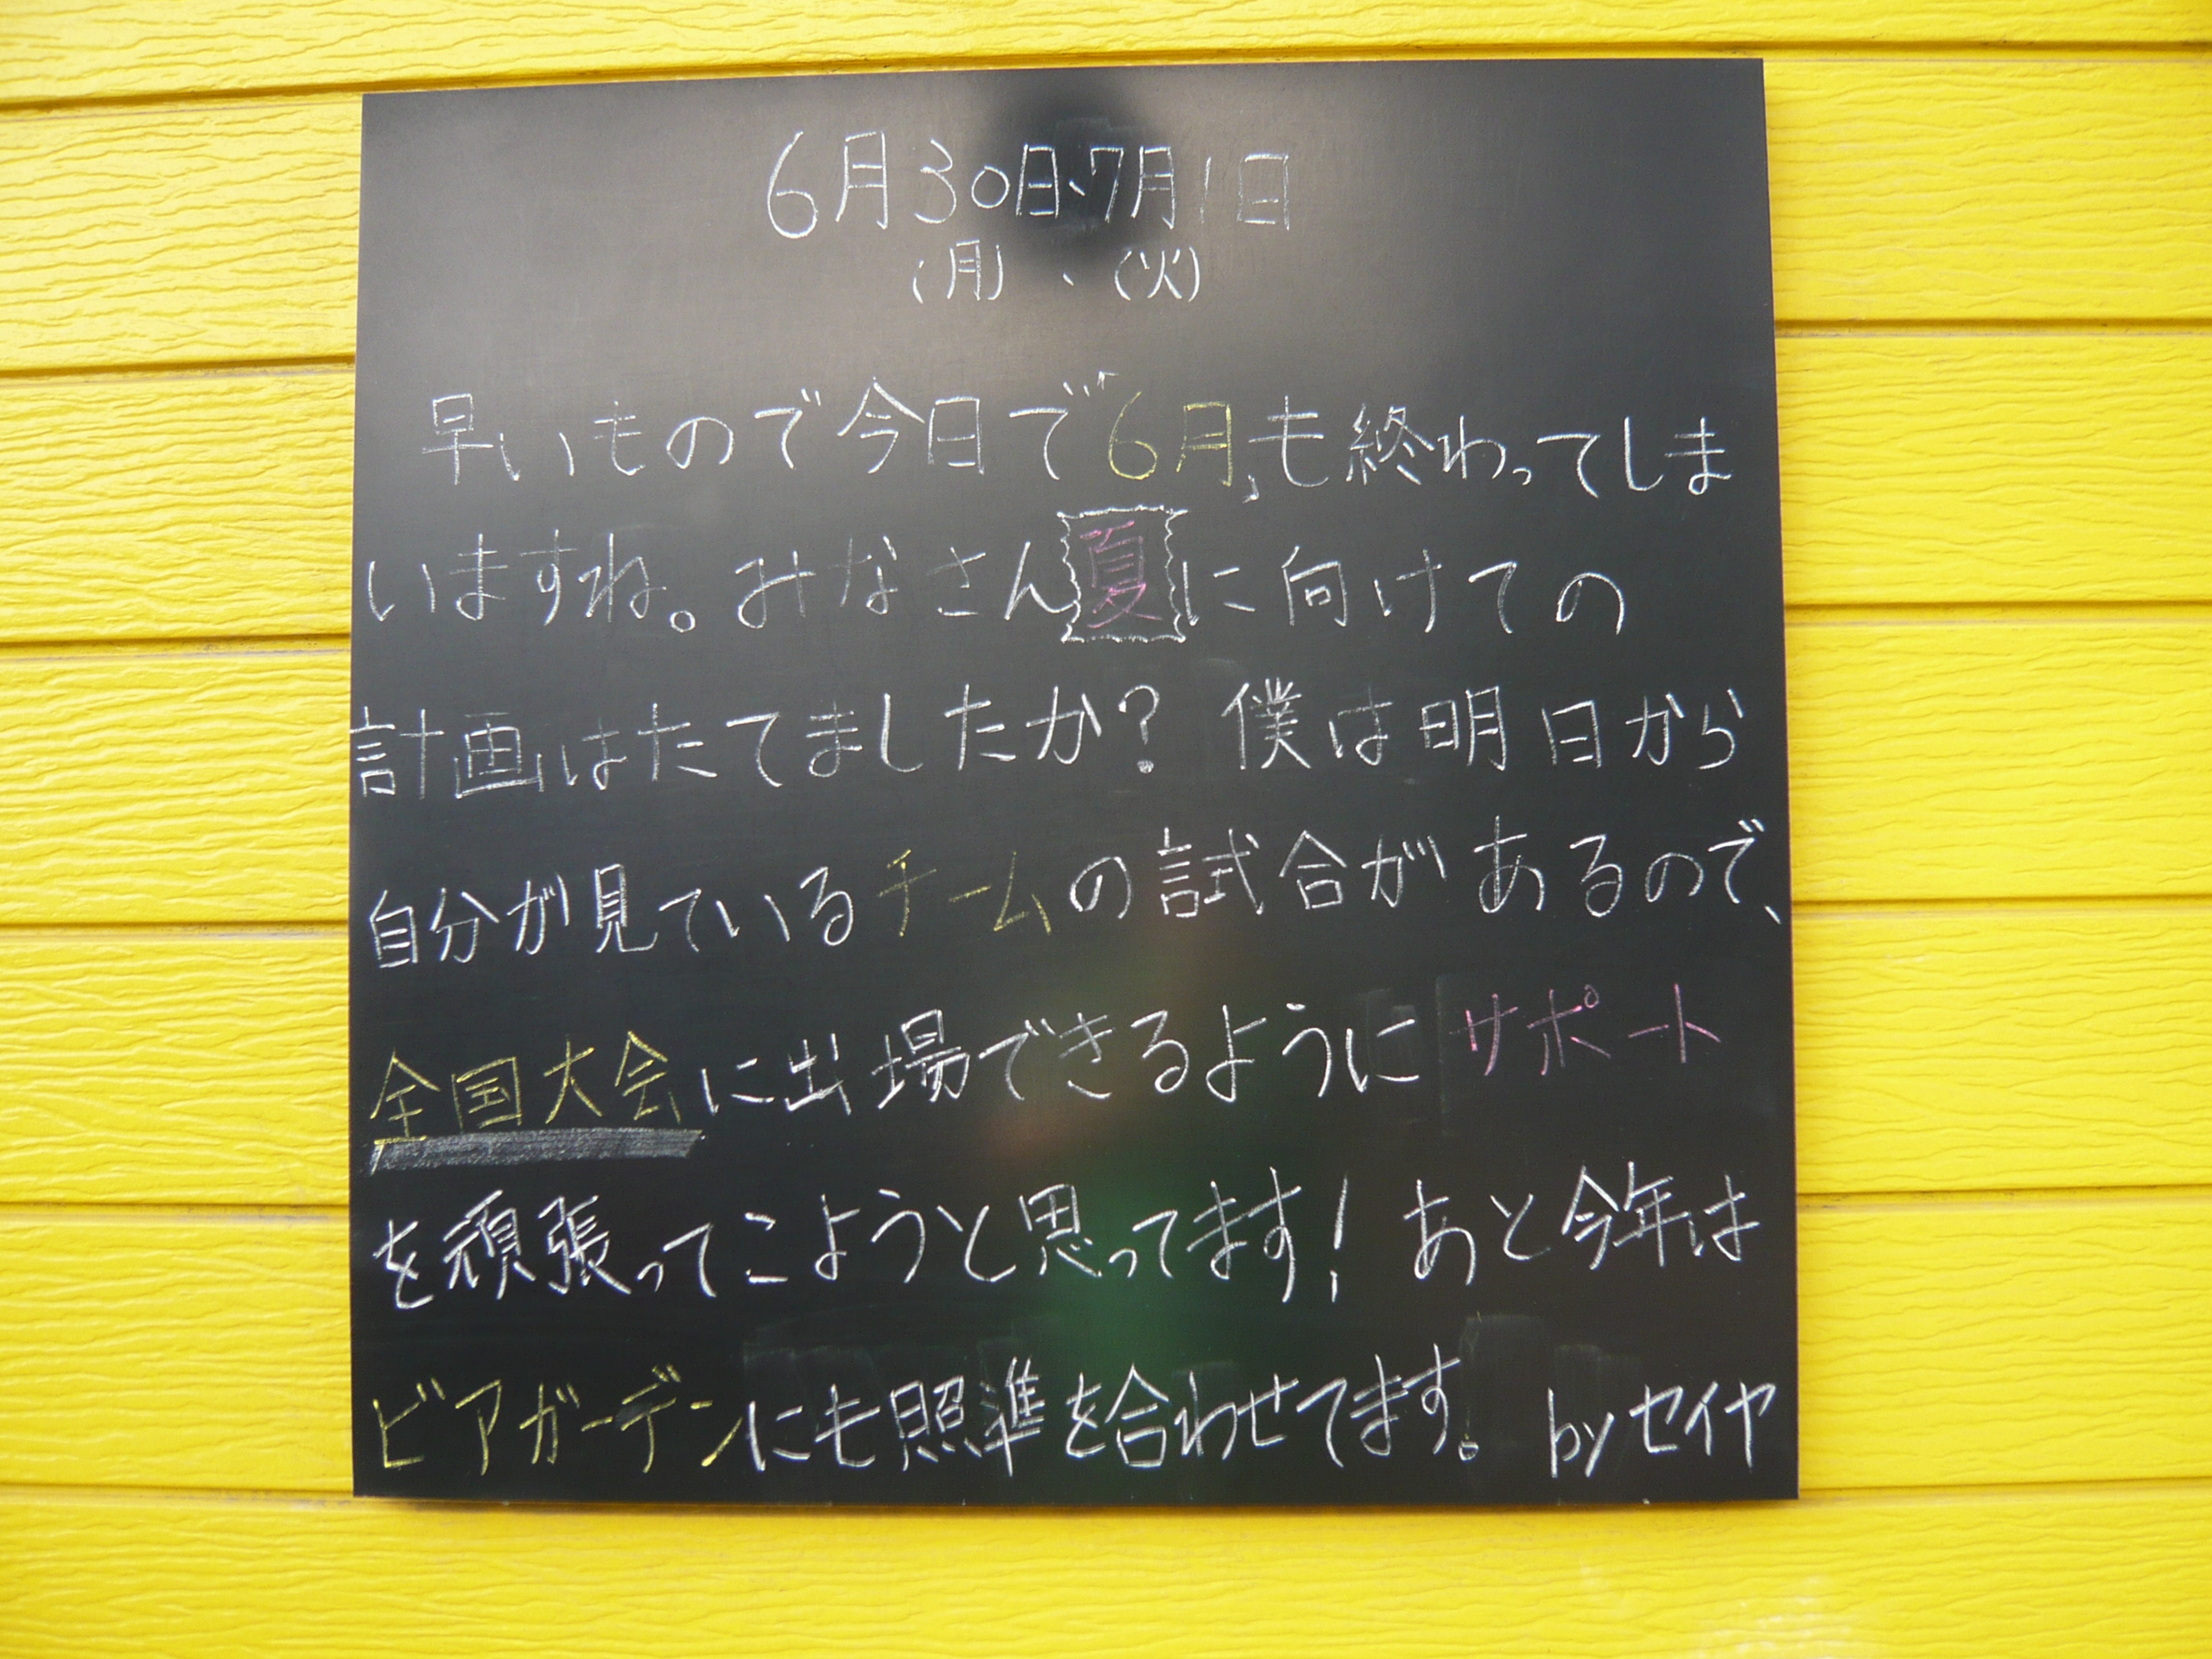 6月30日、7月1日
(月)、(火)
早いもので今日で"6月„も終わってしま
いますね。みなさん夏に向けての
計画はたてましたか？僕は明日から
自分が見ているチームの試合があるので、
全国大会に出場できるようにサポート
を頑張ってこようと思ってます！あと今年は
ビアガーデンにも照準を合わせてます。byセイヤ